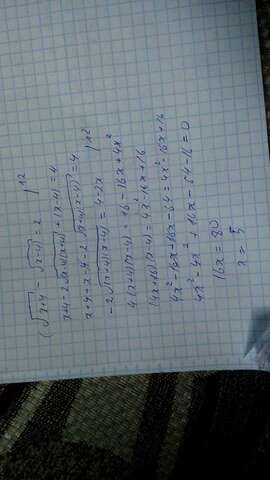 (√x+4 - √x-4) = 2 |^2
x+4-2√(x+4)(x-4) + (x-4) = 4
x+4+x-4-2√(x+4)(x-4) = 4
-2√(x+4)(x-4) = 4-2x |^2
4(x+4)(x-4) = 16-16x+4x²
(4x+16)(x-4) = 4x²-16x+16
4x²-16x+16x-64 = 4x²-16x+16
4x²-4x²+16x-64-16=0
16x = 80
x = 5